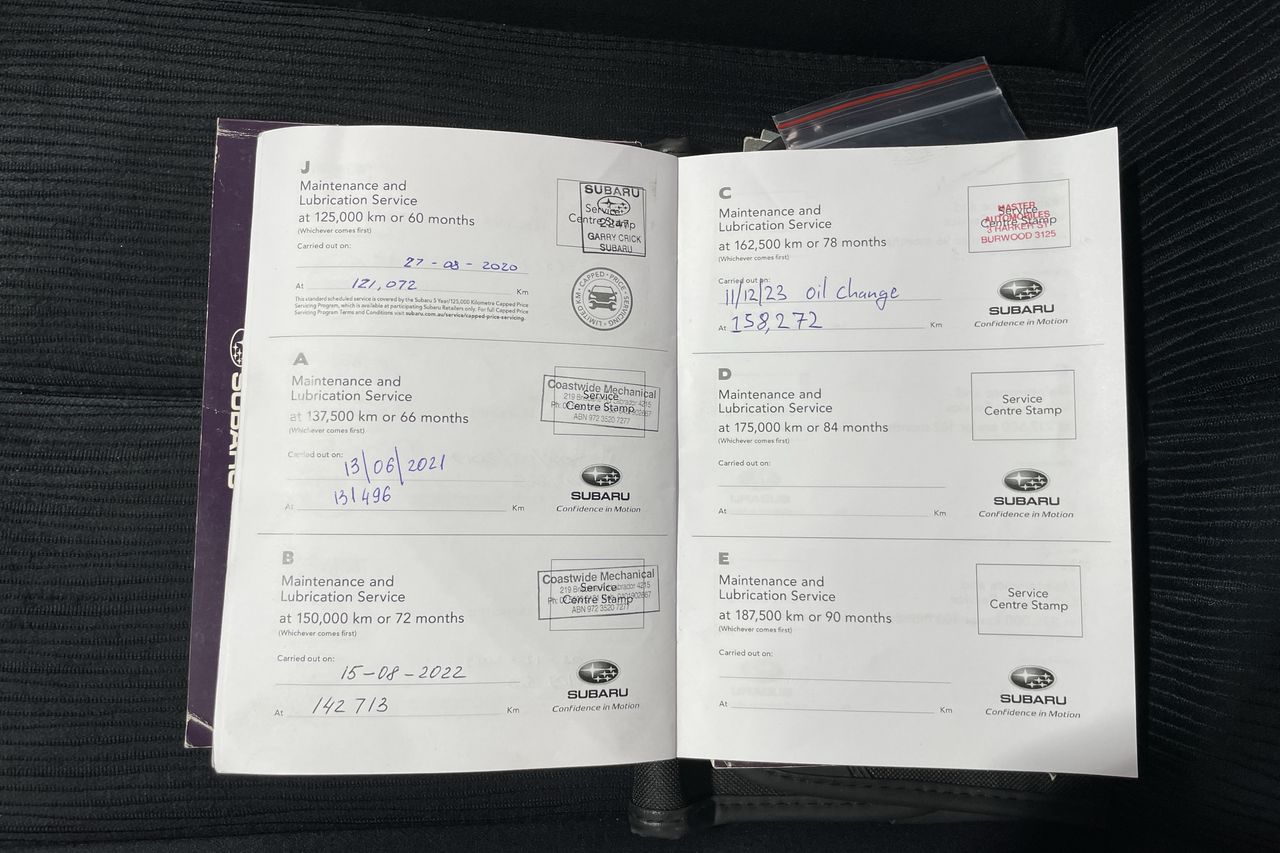 SUBARU
J
Maintenance and
Lubrication Service
at 125,000 km or 60 months
(Whichever comes first)
Carried out on:
27-08-2020
At 121,072 Km
This standard scheduled service is covered by the Subaru 5 Year/125,000 Kilometre Capped Price
Servicing Program, which is available at participating Subaru Retailers only. For full Capped Price
Servicing Program Terms and Conditions visit subaru.com.au/service/capped-price-servicing.
SUBARU
Service
Centre Stamp
2247
GARRY CRICK
SUBARU
CAPPED • PRICE • SERVICING • LIMITED KM •
A
Maintenance and
Lubrication Service
at 137,500 km or 66 months
(Whichever comes first)
Carried out on:
13/06/2021
131496
At Km
Coastwide Mechanical
Service
Centre Stamp
ABN 972 3520 7277
SUBARU
Confidence in Motion
B
Maintenance and
Lubrication Service
at 150,000 km or 72 months
(Whichever comes first)
Carried out on:
15-08-2022
At 142 713 Km
Coastwide Mechanical
Service
Centre Stamp
ABN 972 3520 7277
SUBARU
Confidence in Motion
C
Maintenance and
Lubrication Service
at 162,500 km or 78 months
(Whichever comes first)
Carried out on:
11/12/23 oil change
At 158,272 Km
MASTER
AUTOMOBILES
3 HARKER ST
BURWOOD 3125
Service
Centre Stamp
SUBARU
Confidence in Motion
D
Maintenance and
Lubrication Service
at 175,000 km or 84 months
(Whichever comes first)
Carried out on:
At Km
Service
Centre Stamp
SUBARU
Confidence in Motion
E
Maintenance and
Lubrication Service
at 187,500 km or 90 months
(Whichever comes first)
Carried out on:
At Km
Service
Centre Stamp
SUBARU
Confidence in Motion